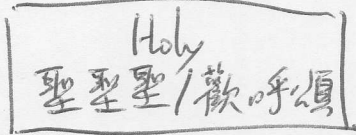 Holy
聖聖聖/歡呼頌